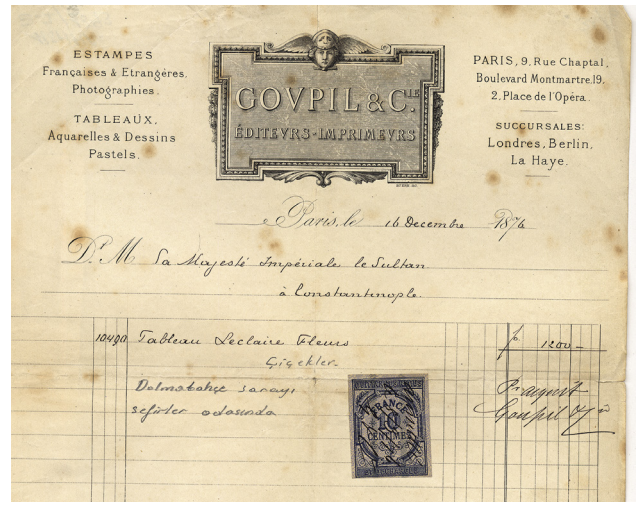 ESTAMPES
Françaises & Etrangéres.
Photographies.
TABLEAUX,
Aquarelles & Dessins
Pastels.
GOVPIL & CIE.
ÉDITEVRS-IMPRIMEVRS
PARIS, 9, Rue Chaptal,
Boulevard Montmartre, 19,
2, Place de l'Opéra.
SUCCURSALES:
Londres, Berlin,
La Haye.
Paris, le 16 Decembre 1876
Dt. M Sa Majesté Impériale le Sultan
à Constantinople.
10490 Tableau Leclaire Fleurs f 1200-
Çiçekler-
Dolmabahçe sarayı
sefirler odasında
FRANCE
10
CENTIMES
Goupil